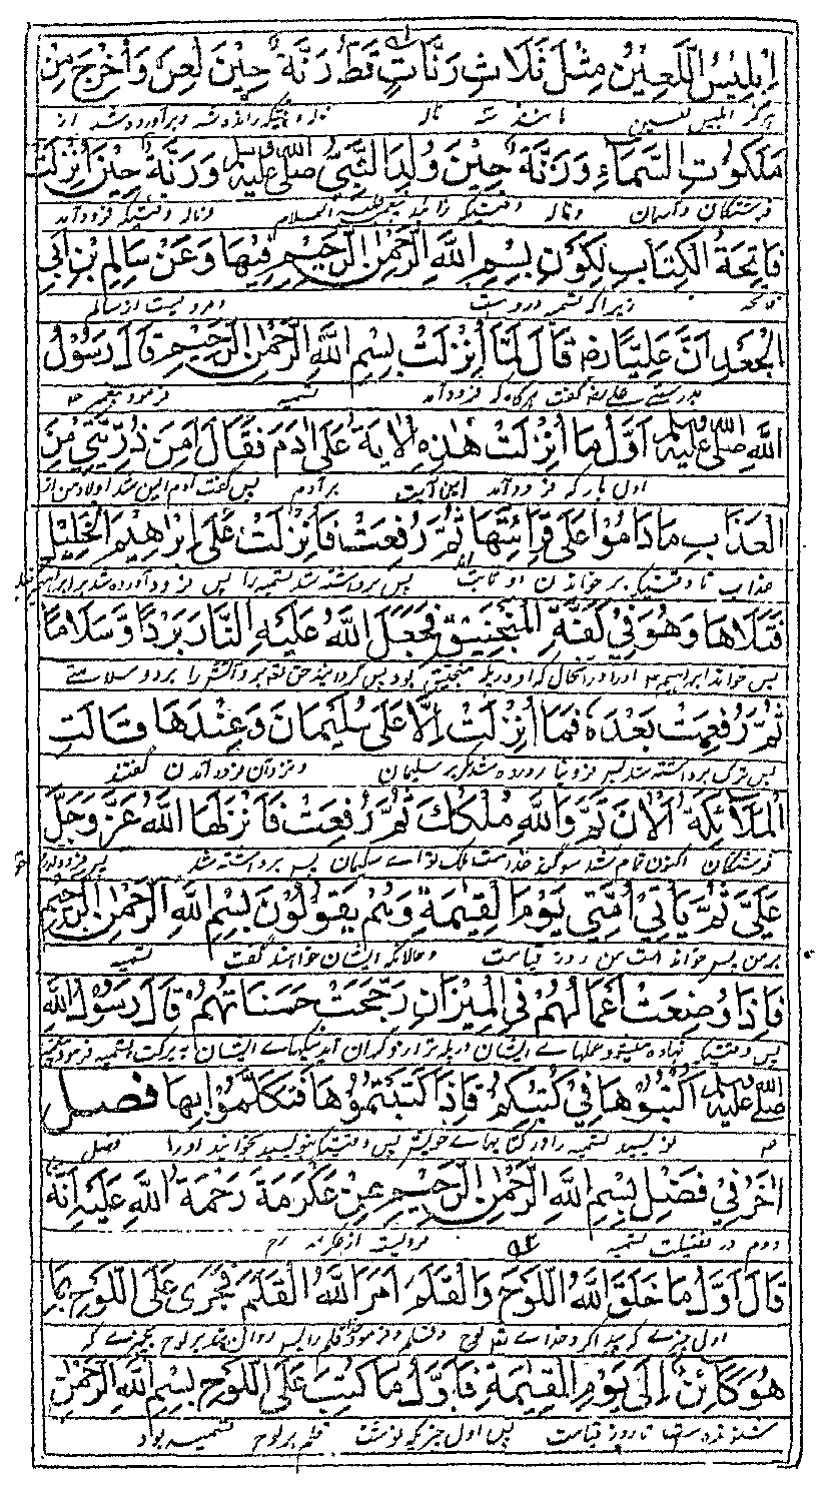 اِبْلِيْسُ اللَّعِيْنُ مِثْلَ ثَلَاثِ رَنَّاتٍ قَطُّ رَنَّةً حِيْنَ لُعِنَ وَاُخْرِجَ مِنْ
هرگز ابلیس لعین مانند سه ناله ناله وقتیکه رانده شد و برآورده شد از
مَلَكُوْتِ السَّمَاءِ وَرَنَّةً حِيْنَ وُلِدَ النَّبِيُّ صلى الله عليه وسلم وَرَنَّةً حِيْنَ اُنْزِلَتْ
فرشتگان و آسمان و ناله وقتیکه زائیده شد پیغمبر علیه السلام و ناله وقتیکه فرود آمد
فَاتِحَةُ الْكِتَابِ لِكَوْنِ بِسْمِ اللهِ الرَّحْمٰنِ الرَّحِيْمِ فِيْهَا وَعَنْ سَالِمِ بْنِ اَبِي
فاتحه زیرا که تسمیه درو است و مرویست از سالم
الْجَعْدِ اَنَّ عَلِيًّا رض قَالَ لَمَّا اُنْزِلَتْ بِسْمِ اللهِ الرَّحْمٰنِ الرَّحِيْمِ قَالَ رَسُوْلُ
بدرستی علی رض گفت هرگاه که فرود آمد تسمیه فرمود پیغمبر
اللهِ صلى الله عليه وسلم اَوَّلُ مَا اُنْزِلَتْ هٰذِهِ الْاٰيَةُ عَلٰى اٰدَمَ فَقَالَ اَمِنَ ذُرِّيَّتِيْ مِنَ
اول بار که فرود آمد این آیت بر آدم پس گفت آدم ایمن شد اولاد من از
الْعَذَابِ مَا دَامُوْا عَلٰى قِرَائَتِهَا ثُمَّ رُفِعَتْ فَاُنْزِلَتْ عَلٰى اِبْرٰهِيْمَ الْخَلِيْلِ
عذاب تا وقتیکه بر خواندن او ثابت اند پس برداشته شد تسمیه را پس فرود آورده شد بر ابراهیم خلیل
فَتَلَاهَا وَهُوَ فِيْ كَفَّةِ الْمَنْجَنِيْقِ فَجَعَلَ اللهُ عَلَيْهِ النَّارَ بَرْدًا وَّسَلَامًا
پس خواند ابراهیم اورا در آنحال که او در پله منجنیق بود پس گردانید حق تعم برو آتش را برد و سلامتی
ثُمَّ رُفِعَتْ بَعْدَهٗ فَمَا اُنْزِلَتْ اِلَّا عَلٰى سُلَيْمَانَ وَعِنْدَهَا قَالَتِ
برداشته شد سلیمان و نزد آن فرود آمدن گفتند
الْمَلَآئِكَةُ الْاٰنَ تَمَّ وَاللهِ مُلْكُكَ ثُمَّ رُفِعَتْ فَاَنْزَلَهَا اللهُ عَزَّ وَجَلَّ
فرشتگان اکنون تمام شد سوگند خداست ملک تو ای سلیمان پس برداشته شد پس فرود آورد
عَلَيَّ ثُمَّ يَاْتِيْ اُمَّتِيْ يَوْمَ الْقِيٰمَةِ وَهُمْ يَقُوْلُوْنَ بِسْمِ اللهِ الرَّحْمٰنِ الرَّحِيْمِ
بر من پس خواهد امت من روز قیامت و حالانکه ایشان خواهند گفت تسمیه
فَاِذَا وُضِعَتْ اَعْمَالُهُمْ فِي الْمِيْزَانِ رَجَحَتْ حَسَنَاتُهُمْ قَالَ رَسُوْلُ اللهِ
پس وقتیکه نهاده میشود عملهای ایشان در پله ترازو گران آید نیکیهای ایشان به برکت تسمیه فرمود
صلى الله عليه وسلم اُكْتُبُوْهَا فِيْ كُتُبِكُمْ فَاِذَا كَتَبْتُمُوْهَا فَتَكَلَّمُوْا بِهَا فصل
نویسید تسمیه را در کتابهای خویش پس وقتیکه بنویسید بخوانید اورا فصل
اٰخَرُ فِيْ فَضْلِ بِسْمِ اللهِ الرَّحْمٰنِ الرَّحِيْمِ عَنْ عِكْرِمَةَ رَحْمَةُ اللهِ عَلَيْهِ اَنَّهٗ
دوم در فضیلت تسمیه مرویست از عکرمه رح
قَالَ اَوَّلُ مَا خَلَقَ اللهُ اللَّوْحَ وَالْقَلَمَ اَمَرَ اللهُ الْقَلَمَ فَجَرٰى عَلَى اللَّوْحِ بِمَا
اول چیزی که پیدا کرد خدای تعم لوح و قلم و فرمود قلم را پس روان شد بر لوح بچیزی که
هُوَ كَائِنٌ اِلٰى يَوْمِ الْقِيٰمَةِ فَاَوَّلُ مَا كَتَبَ عَلَى اللَّوْحِ بِسْمِ اللهِ الرَّحْمٰنِ
تا روز قیامت پس اول چیز که نوشت قلم بر لوح تسمیه بود